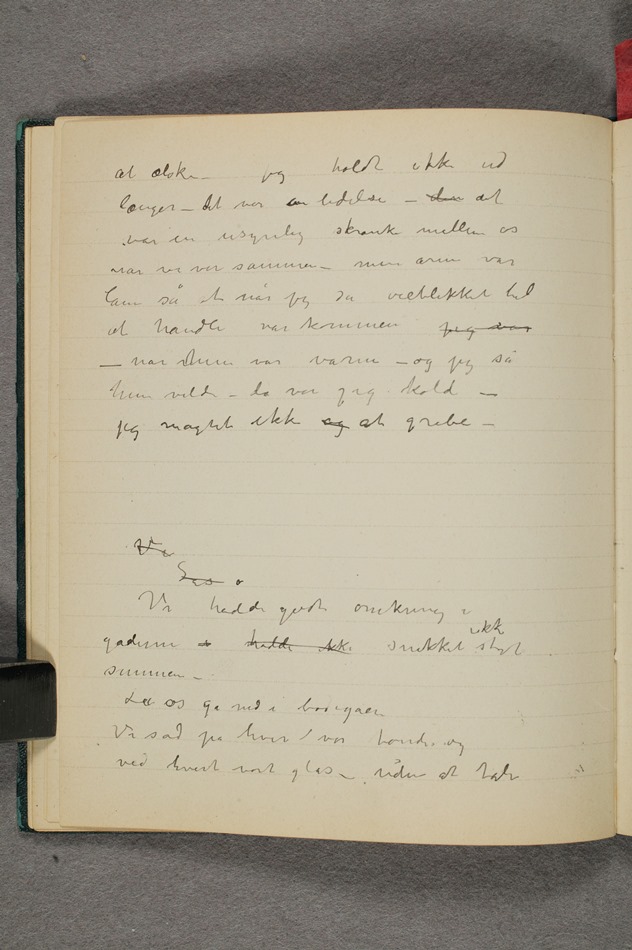 at elske – jeg holdt ikke ud
længer – det var en lidelse – den at
var en usynlig skranke mellem os
når vi var sammen – min arm var
lam så at når jeg så øieblikket til
at handle var kommen jeg var
– når hun var varm – og jeg så
hun vilde – da var jeg kold –
jeg magted ikke og at gribe –
Vi
Vi hadde gådt omkring i
gaderne hadde ikke snakket ikke stort
sammen –
Lad os gå ned i bodegaen
Vi sad på hver vor tønde og
ved hvert vort glas – uden at tale